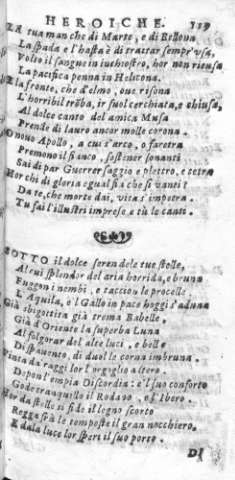 HEROICHE. 139
LA tua man che di Marte, e di Bellona
La spada e l'hasta è di trattar sempr'usa,
Volto il sangue in inchiostro, hor non ricusa
La pacifica penna in Helicona.
E la fronte, che d'elmo, onde risona
L'horribil trõba, ir suol cerchiata, e chiusa,
Al dolce canto del amica Musa
Prende di lauro ancor molle corona.
O nouo Apollo, a cui s'arco, o faretra
Premono il fianco, sostener sonanti
Sai di par Guerrer saggio e plettro, e cetra
Hor chi di gloria egual si a che si vanti?
Da te, che morte dai, vita s'impetra.
Tu fai l'illustri imprese e tù le canti.
SOTTO il dolce seren de le tue stelle,
Al cui splendor del aria horrida, e bruna
Fuggon i nembi, e taccion le procelle
L'Aquila, e'l Gallo in pace hoggi s'aduna
Già sbigottita già trema Babelle
Già d'Oriente la superba Luna
Al folgorar del alte luci, e belle
Di spauento, di duol le corna imbruna.
Vinta da raggi lor l'orgoglio altero
Depon l'empia Discordia: e'l suo conforto
Gode tranquillo il Rodano, e l'Ibero.
Hor da stelle si fide il legno scorto
Regga frà le tempeste il gran nocchiero.
E da la luce lor speri il suo porto.
DI